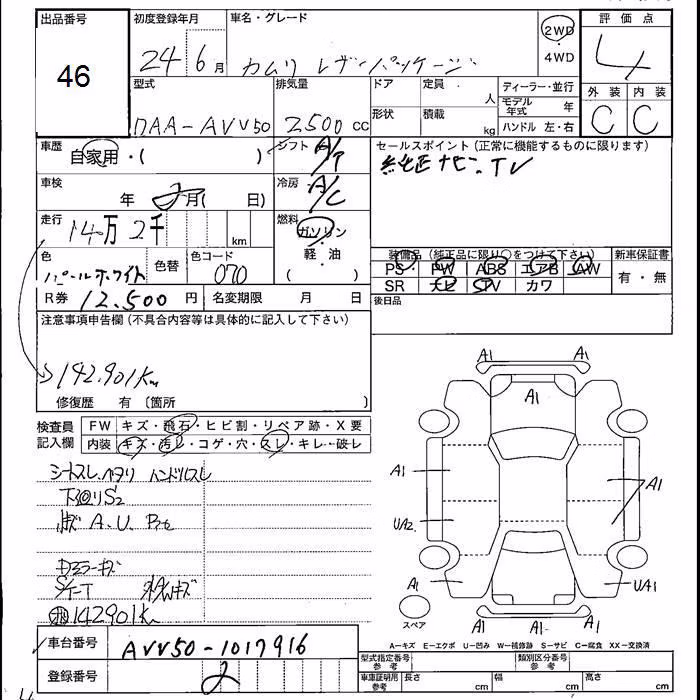 出品番号
46
初度登録年月
24 6月
車名・グレード
カムリ レザーパッケージ
2WD
4WD
評価点
4
外装 内装
C C
型式
DAA-AVV50
排気量
2500 cc
ドア 定員 人
形状 積載 kg
ディーラー・並行
モデル年式 年
ハンドル 左・右
車歴
自家用・( )
シフト A/T
セールスポイント(正常に機能するものに限ります)
純正ナビ TV
車検
年 月( 日)
冷房 A/C
走行
14万2千 km
燃料
ガソリン
・
軽・油
( )
色
パールホワイト
色替
色コード
070
R券 12.500円
名変期限 月 日
装備品(純正品に限り○をつけて下さい)
PS PW ABS エアB AW
SR ナビ TV カワ
新車保証書
有・無
後日品
注意事項申告欄(不具合内容等は具体的に記入して下さい)
142.901Km
修復歴 有〔箇所 〕
検査員記入欄
FW キズ・飛石・ヒビ割・リペア跡・X要
内装 キズ・汚レ・コゲ・穴・スレ・キレ・破レ
シートスレ.ヘタリ ハンドルスレ
下廻りS2
A.U.
ドアミラーキズ
142901Km
A1 A1
A1
A1
A1
UA2
A1
UA1
A1 A1
スペア
A―キズ E―エクボ U―凹み W―補修跡 S―サビ C―腐食 XX―交換済
車台番号
AVV50-1017916
登録番号
2
型式指定番号 参考
類別区分番号 参考
車庫証明用 参考
長さ cm
幅 cm
高さ cm